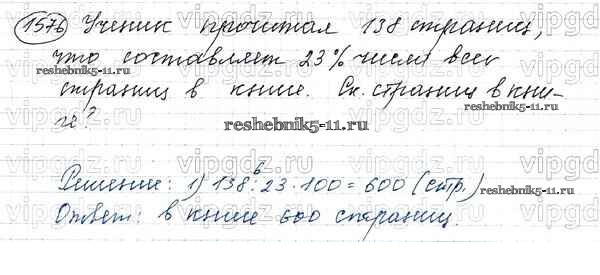 1576 Ученик прочитал 138 страниц,
что составляет 23% числа всех
страниц в книге. Ск. страниц в кни-
ге?
Решение: 1) 138 : 23 · 100 = 600 (стр.)
6
Ответ: в книге 600 страниц.
vipgdz.ru
reshebnik5-11.ru
reshebnik5-11.ru
reshebnik5-11.ru
reshebnik5-11.ru